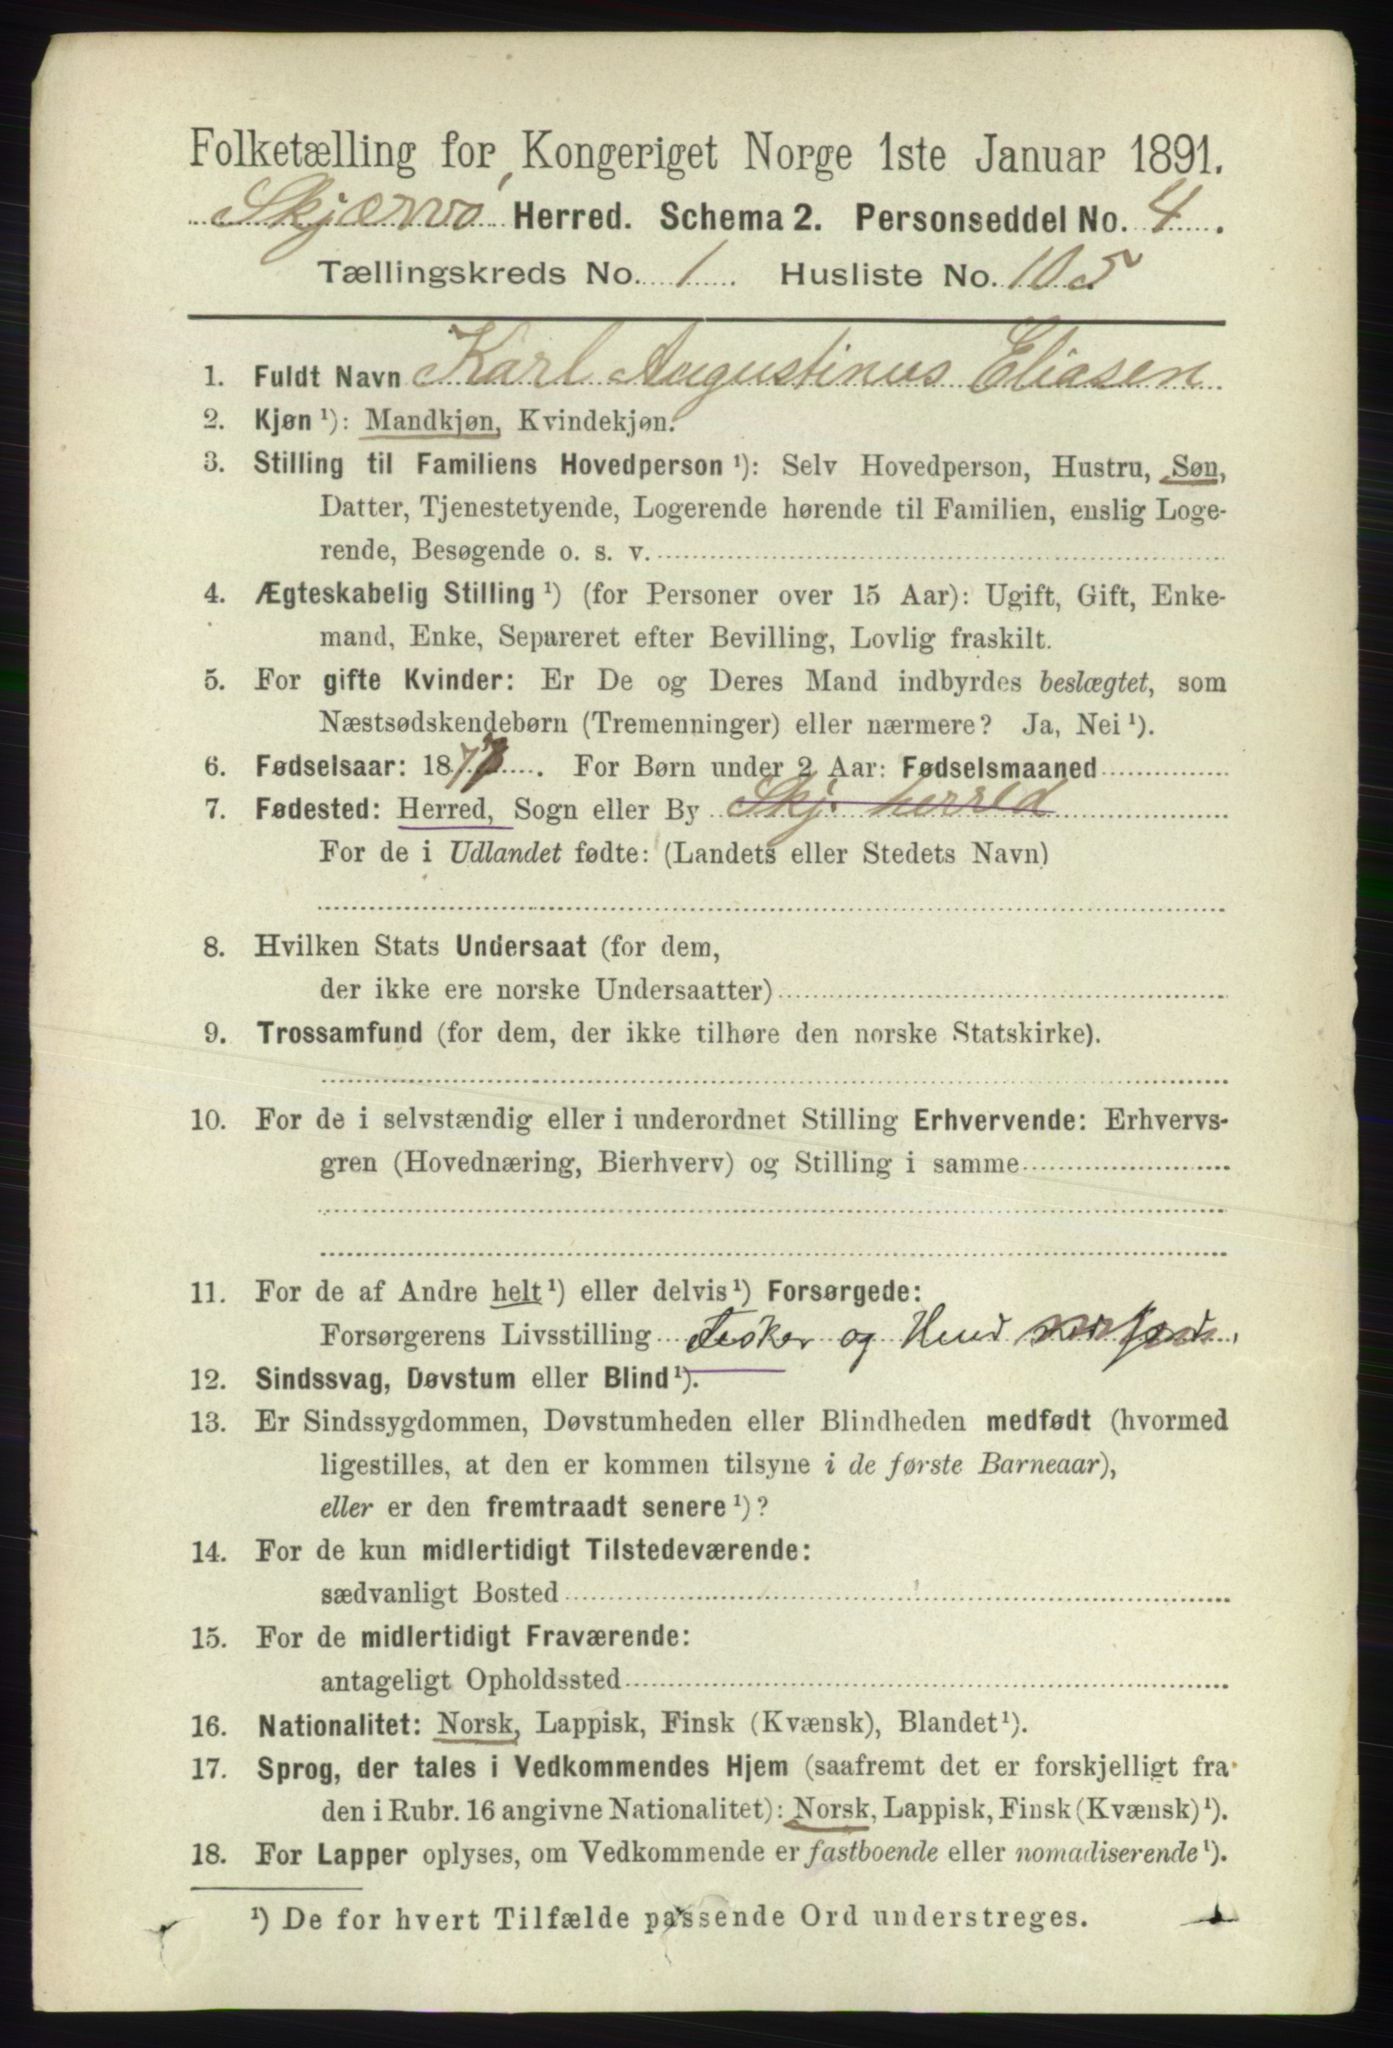 Folketælling for Kongeriget Norge 1ste Januar 1891.
Skjærvö Herred. Schema 2. Personseddel No. 4.
Tællingskreds No. 1 Husliste No. 105
1. Fuldt Navn Karl Augustinus Eliasen
2. Kjøn ¹): Mandkjøn, Kvindekjøn.
3. Stilling til Familiens Hovedperson ¹): Selv Hovedperson, Hustru, Søn,
Datter, Tjenestetyende, Logerende hørende til Familien, enslig Loge-
rende, Besøgende o. s. v.
4. Ægteskabelig Stilling ¹) (for Personer over 15 Aar): Ugift, Gift, Enke-
mand, Enke, Separeret efter Bevilling, Lovlig fraskilt.
5. For gifte Kvinder: Er De og Deres Mand indbyrdes beslægtet, som
Næstsødskendebørn (Tremenninger) eller nærmere? Ja, Nei ¹).
6. Fødselsaar: 1877. For Børn under 2 Aar: Fødselsmaaned
7. Fødested: Herred, Sogn eller By Skj. herred
For de i Udlandet fødte: (Landets eller Stedets Navn)
8. Hvilken Stats Undersaat (for dem,
der ikke ere norske Undersaatter)
9. Trossamfund (for dem, der ikke tilhøre den norske Statskirke).
10. For de i selvstændig eller i underordnet Stilling Erhvervende: Erhvervs-
gren (Hovednæring, Bierhverv) og Stilling i samme
11. For de af Andre helt ¹) eller delvis ¹) Forsørgede:
Forsørgerens Livsstilling Fisker og
12. Sindssvag, Døvstum eller Blind ¹).
13. Er Sindssygdommen, Døvstumheden eller Blindheden medfødt (hvormed
ligestilles, at den er kommen tilsyne i de første Barneaar),
eller er den fremtraadt senere ¹)?
14. For de kun midlertidigt Tilstedeværende:
sædvanligt Bosted
15. For de midlertidigt Fraværende:
antageligt Opholdssted
16. Nationalitet: Norsk, Lappisk, Finsk (Kvænsk), Blandet ¹).
17. Sprog, der tales i Vedkommendes Hjem (saafremt det er forskjelligt fra
den i Rubr. 16 angivne Nationalitet): Norsk, Lappisk, Finsk (Kvænsk) ¹).
18. For Lapper oplyses, om Vedkommende er fastboende eller nomadiserende ¹).
¹) De for hvert Tilfælde passende Ord understreges.